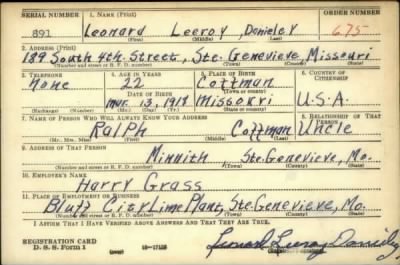 SERIAL NUMBER 1. NAME (Print) ORDER NUMBER
891 Leonard Leeroy Donieley 675
(First) (Middle) (Last)
2. ADDRESS (Print)
189 South 4th Street, Ste. Genevieve Missouri
(Number and street or R. F. D. number) (Town) (County) (State)
3. TELEPHONE 4. AGE IN YEARS 5. PLACE OF BIRTH 6. COUNTRY OF CITIZENSHIP
None 22 Coffman
DATE OF BIRTH (Town or county)
Mar. 13, 1918 Missouri U.S.A.
(Exchange) (Number) (Mo.) (Day) (Yr.) (State or country)
7. NAME OF PERSON WHO WILL ALWAYS KNOW YOUR ADDRESS 8. RELATIONSHIP OF THAT PERSON
Ralph Coffman Uncle
(Mr., Mrs., Miss) (First) (Middle) (Last)
9. ADDRESS OF THAT PERSON
Minnith Ste. Genevieve, Mo.
(Number and street or R. F. D. number) (Town) (County) (State)
10. EMPLOYER'S NAME
Harry Grass
11. PLACE OF EMPLOYMENT OR BUSINESS
Bluff City Lime Plant, Ste. Genevieve, Mo.
(Number and street or R. F. D. number) (Town) (County) (State)
I AFFIRM THAT I HAVE VERIFIED ABOVE ANSWERS AND THAT THEY ARE TRUE.
REGISTRATION CARD
D. S. S. Form 1 16-17105 Leonard Leeroy Donieley